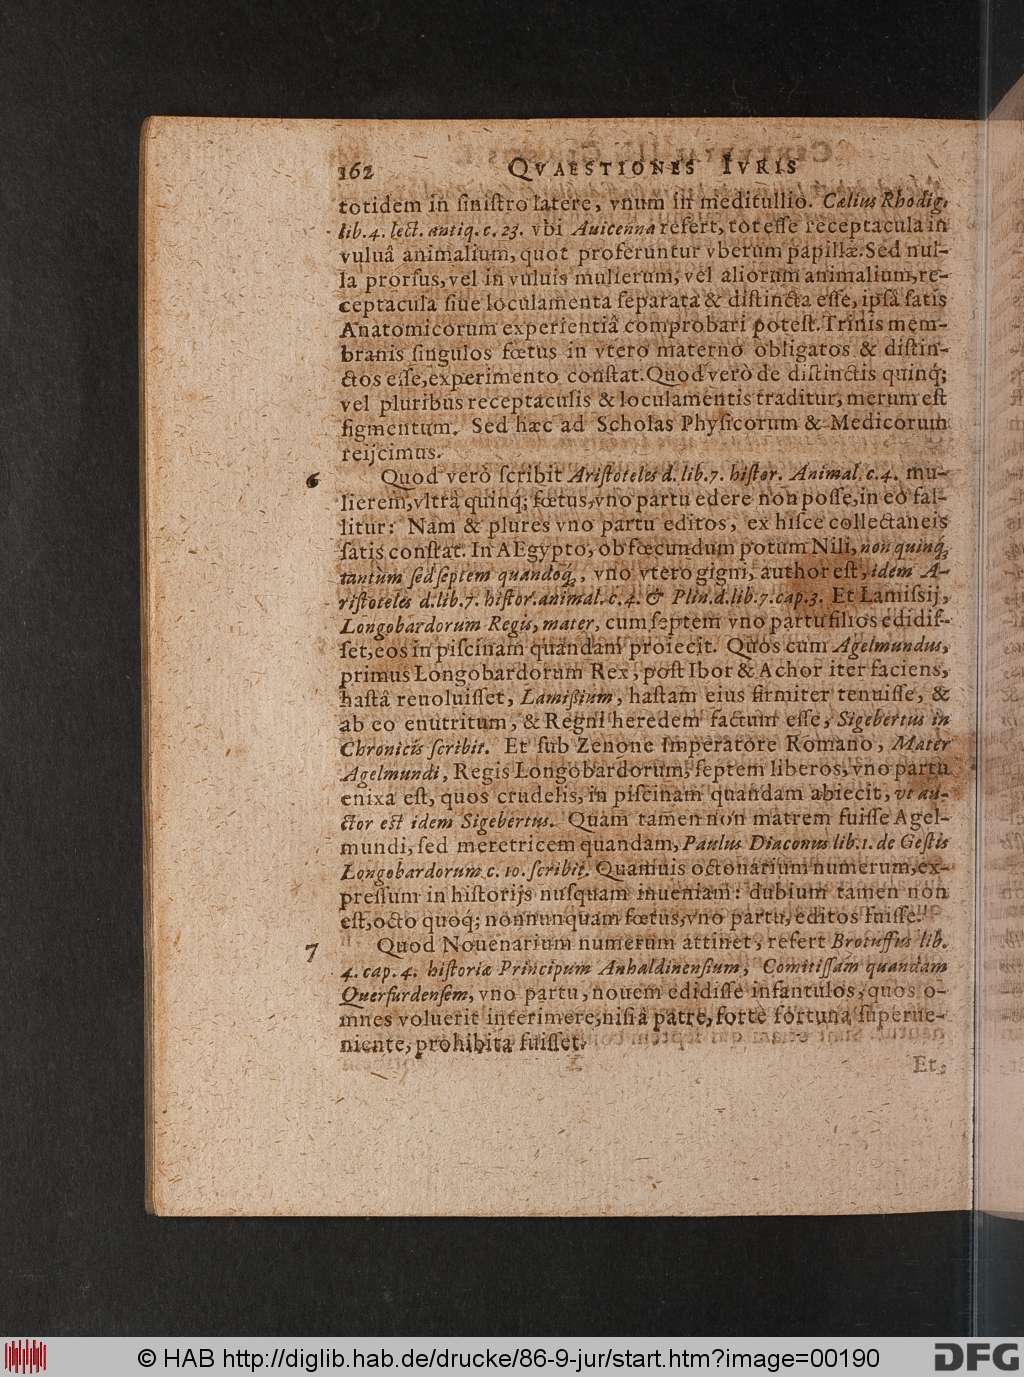 162 QVAESTIONES IVRIS
totidem in ſiniſtro latere, vnum in meditullio. Cælius Rhodig.
lib. 4. lect. antiq. c. 23. vbi Auicenna refert, tot eſſe receptacula in
vuluâ animalium, quot proferuntur vberum papillæ. Sed nul-
la prorſus, vel in vuluis mulierum, vel aliorum animalium, re-
ceptacula ſiue loculamenta ſeparata & diſtincta eſſe, ipſâ ſatis
Anatomicorum experientiâ comprobari poteſt. Trinis mem-
branis ſingulos fœtus in vtero materno obligatos & diſtin-
ctos eſſe, experimento conſtat. Quod verò de diſtinctis quinq;
vel pluribus receptaculis & loculamentis traditur, merum eſt
figmentum. Sed hæc ad Scholas Phyſicorum & Medicorum
reijcimus.
6 Quod verò ſcribit Ariſtoteles d. lib. 7. hiſtor. Animal. c. 4. mu-
lierem, vltrâ quinq; fœtus, vno partu edere non poſſe, in eo fal-
litur: Nam & plures vno partu editos, ex hiſce collectaneis
ſatis conſtat. In AEgypto, ob fœcundum potum Nili, non quinq;
tantùm ſed ſeptem quandoq;, vno vtero gigni, author eſt, idem A-
riſtoteles d. lib. 7. hiſtor. animal. c. 4. & Plin. d. lib. 7. cap. 3. Et Lamiſsij,
Longobardorum Regis, mater, cum ſeptem vno partu filios edidiſ-
ſet, eos in piſcinam quandam proiecit. Quos cum Agelmundus,
primus Longobardorum Rex, poſt Ibor & Achor iter faciens,
haſtâ reuoluiſſet, Lamiſsium, haſtam eius firmiter tenuiſſe, &
ab eo enutritum, & Regni heredem factum eſſe, Sigebertus in
Chronicis ſcribit. Et ſub Zenone Imperatore Romano, Mater
Agelmundi, Regis Longobardorum, ſeptem liberos, vno partu
enixa eſt, quos crudelis, in piſcinam quandam abiecit, vt au-
ctor est idem Sigebertus. Quam tamen non matrem fuiſſe Agel-
mundi, ſed meretricem quandam, Paulus Diaconus lib. 1. de Geſtis
Longobardorum c. 10. ſcribit. Quamuis octonarium numerum, ex-
preſſum in hiſtorijs nuſquam inueniam: dubium tamen non
eſt, octo quoq; nonnunquam fœtus, vno partu, editos fuiſſe.
7 Quod Nouenarium numerum attinet, refert Brotuffus lib.
4. cap. 4. hiſtoriæ Principum Anhaldinenſium, Comitiſſam quandam
Querfurdenſem, vno partu, nouem edidiſſe infantulos, quos o-
mnes voluerit interimere, niſi â patre, fortè fortuna ſuperue-
niente, prohibita fuiſſet.
Et,
© HAB http://diglib.hab.de/drucke/86-9-jur/start.htm?image=00190 DFG